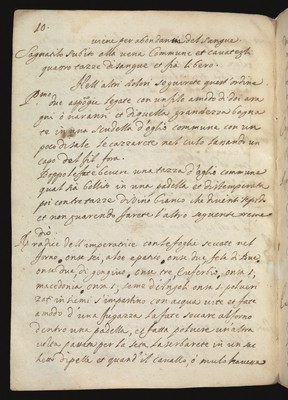 10.
viene per abondanza del sangue.
Sagnatelo subito alla vena Commune et cavategli
quatro tazze di sangue et sia libero.
Nell'altri dolori seguirete quest'ordine
P.mo
due legate con un filo a modo di doi ara
ni ò naranzi et di quella grandezza bagna
te in una scudella d'oglio commune con un
poco di sale le cazzarete nel culo lasando un
capo del fil fora.
Doppo le fate bevere una tazza d'oglio commune
qual sia bollito in una padella et distemperate
poi con tre tazze di vino bianco che diventi tepido
et non guarendo farete l'altro seguente reme
dio.
radice dell'imperatrice con le foglie secate nel
forno, onza sei, aloe epatico, onza due, fele di Bue,
onza due di gengivo, onza tre, Euforbio, onza 1,
macedonia, onza 1, seme onza 1. polveri
zati insiemi s'impastino con acqua vite et fate
a modo d'una fugazza la fate secare al forno
dentro una padella, et fatta polvere un'altra
volta passata per la seta la serbarete in un sa
chetto di pelle et quand'il cavallo, ò mulo